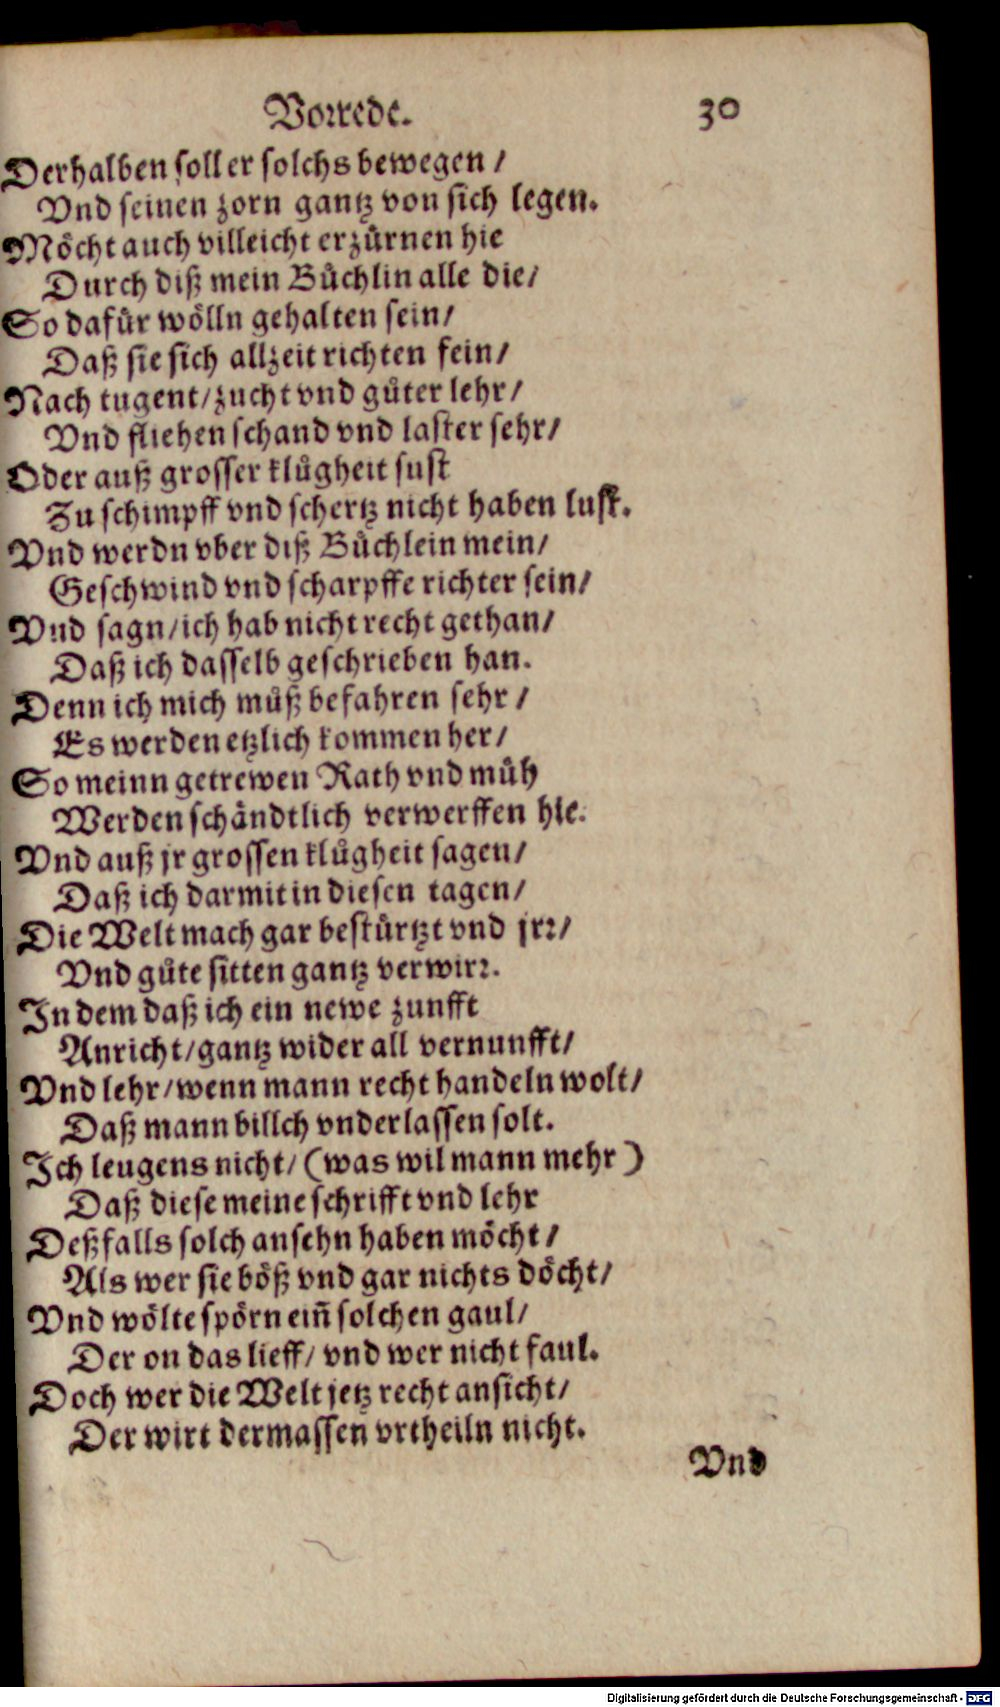 Vorrede. 30
Derhalben soll er solchs bewegen /
Vnd seinen zorn gantz von sich legen.
Möcht auch villeicht erzürnen hie
Durch diß mein Büchlin alle die/
So dafür wölln gehalten sein/
Daß sie sich allzeit richten fein/
Nach tugent/zucht vnd gůter lehr/
Vnd fliehen schand vnd laster sehr/
Oder auß grosser klůgheit sust
Zu schimpff vnd schertz nicht haben lust.
Vnd werdn vber diß Büchlein mein/
Geschwind vnd scharpffe richter sein/
Vnd sagn/ich hab nicht recht gethan/
Daß ich dasselb geschrieben han.
Denn ich mich můß befahren sehr /
Es werden etzlich kommen her/
So meinn getrewen Rath vnd müh
Werden schändtlich verwerffen hie.
Vnd auß jr grossen klůgheit sagen/
Daß ich darmit in diesen tagen/
Die Welt mach gar bestürtzt vnd jrr/
Vnd gůte sitten gantz verwirr.
In dem daß ich ein newe zunfft
Anricht/gantz wider all vernunfft/
Vnd lehr/wenn mann recht handeln wolt/
Daß mann billch vnderlassen solt.
Ich leugens nicht/ (was wil mann mehr)
Daß diese meine schrifft vnd lehr
Deßfalls solch ansehn haben möcht /
Als wer sie böß vnd gar nichts döcht/
Vnd wölte spörn eiñ solchen gaul/
Der on das lieff/ vnd wer nicht faul.
Doch wer die Welt jetz recht ansicht/
Der wirt dermassen vrtheiln nicht.
Vnd
Digitalisierung gefördert durch die Deutsche Forschungsgemeinschaft - DFG